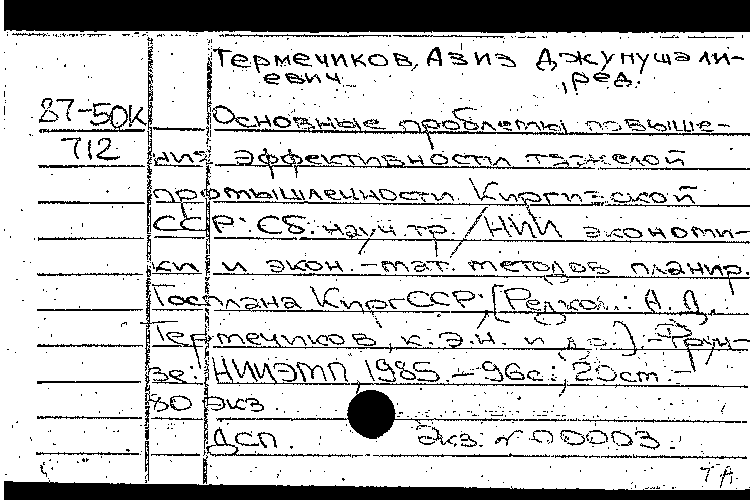 Термечиков, Азиз Джунушали-
евич, ред.
87-50К Основные проблемы повыше-
712 ния эффективности тяжелой
промышленности Киргизской
ССР: Сб. науч. тр. / НИИ экономи-
ки и экон.-мат. методов планир.
Госплана КиргССР; [Редкол.: А.Д.
Термечиков, к.э.н. и др.]. - Фрун-
зе: НИИЭМП, 1985. - 96с.; 20см. -
80 экз.
ДСП. Экз. № 00003.
ТА